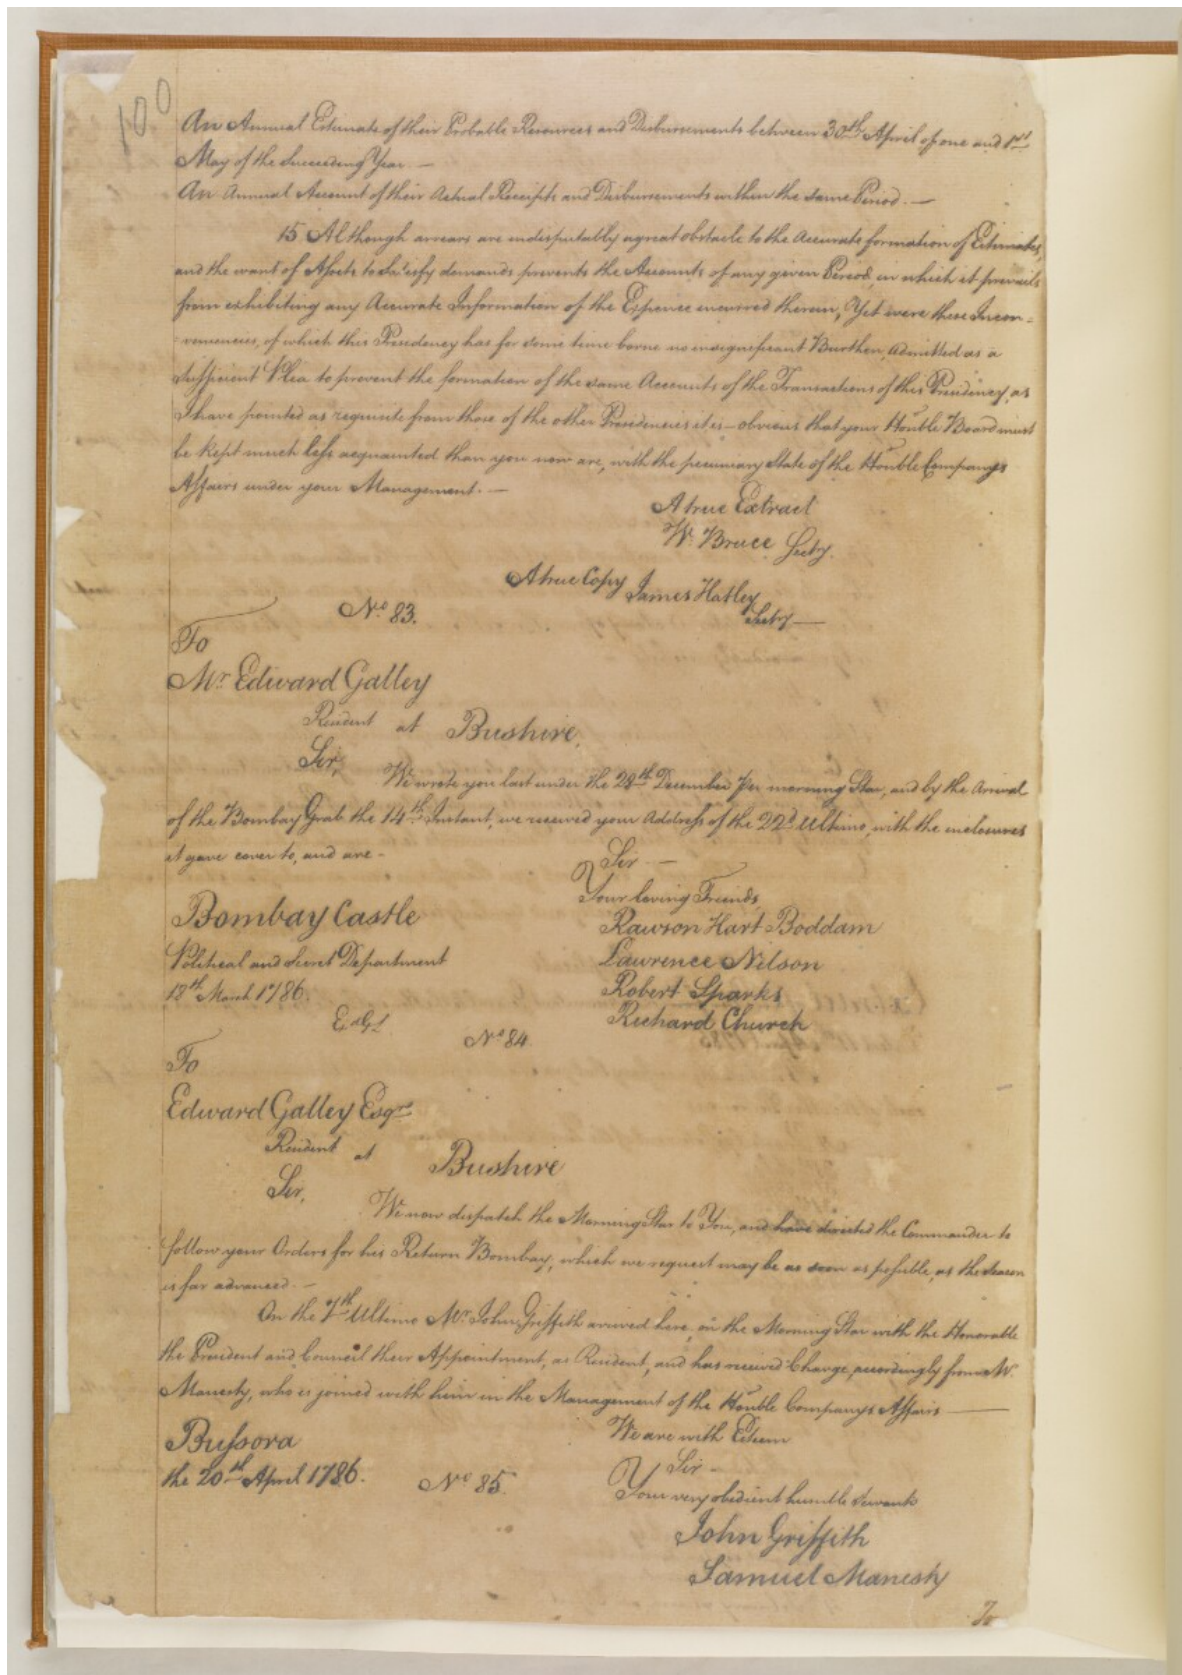 100
An Annual Estimate of their Probable Resources and Disbursements between 30th April of one and 1st
May of the Succeeding Year —
An Annual Account of their Actual Receipts and Disbursements within the same Period. —
15 Although arrears are indisputably a great obstacle to the Accurate formation of Estimates,
and the want of Assets to Satisfy demands prevents the Accounts of any given Period, in which it prevails
from exhibiting any Accurate Information of the Expence incurred therein, Yet were these Incon-
veniencies, of which this Presidency has for some time borne no insignificant Burthen, admitted as a
Sufficient Plea to prevent the formation of the same Accounts of the Transactions of this Presidency, as
I have pointed as requisite from those of the other Presidencies it is — obvious that your Honble Board must
be kept much less acquainted than you now are, with the pecuniary State of the Honble Companys
Affairs under your Management. —
A true Extract
Wm. Bruce Secty.
A true Copy James Hatley
Secty —
No. 83.
To
Mr. Edward Galley
Resident at Bushire,
Sir,
We wrote you last under the 28th December Per morning Star, and by the Arrival
of the Bombay Grab the 14th Instant, we received your Address of the 22d Ultimo, with the enclosures
it gave cover to, and are -
Sir —
Your loving Friends,
Bombay Castle
Rawson Hart Boddam
Political and Secret Department
Lawrence Nilson
18th March 1786.
Robert Sparks
Richard Church
E. G!
No 84.
To
Edward Galley Esqr
Resident at Bushire
Sir,
We now dispatch the Morning Star to You, and have directed the Commander to
follow your Orders for his Return Bombay, which we request may be as soon as possible, as the season
is far advanced. —
On the 7th Ultimo Mr. John Griffith arrived here, on the Morning Star with the Honorable
the President and Council their Appointment, as Resident, and has received Charge, accordingly from Mr.
Manesty, who is joined with him in the Management of the Honble Companys Affairs —
We are with Esteem
Bussora
Sir -
the 20th April 1786.
No 85.
Your very obedient humble Servants
John Griffith
Samuel Manesty
To